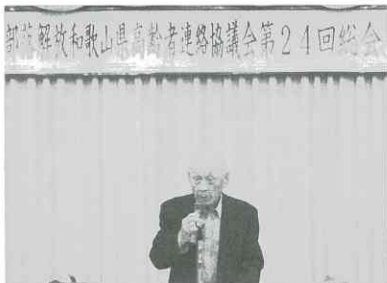 部落解放和歌山県高齢者連絡協議会第24回総会